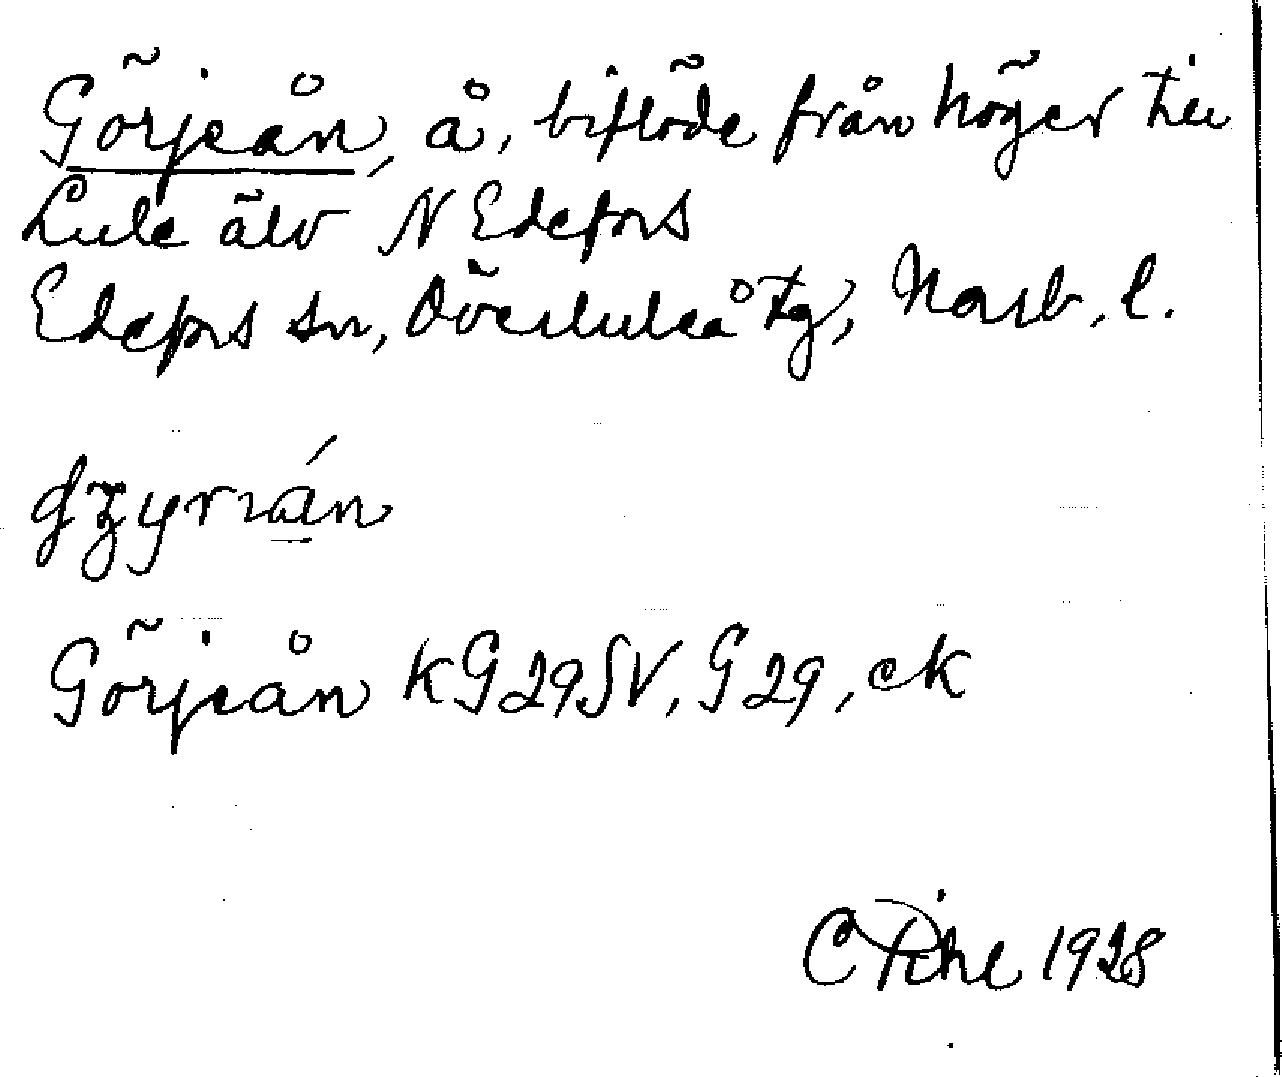 Görjeån, å, biflöde från höger till
Lule älv N Edefors
Edefors sn, Överluleå tg, Norrb. l.
Görjeån KG29SV, G29, ek
C Pihl 1928